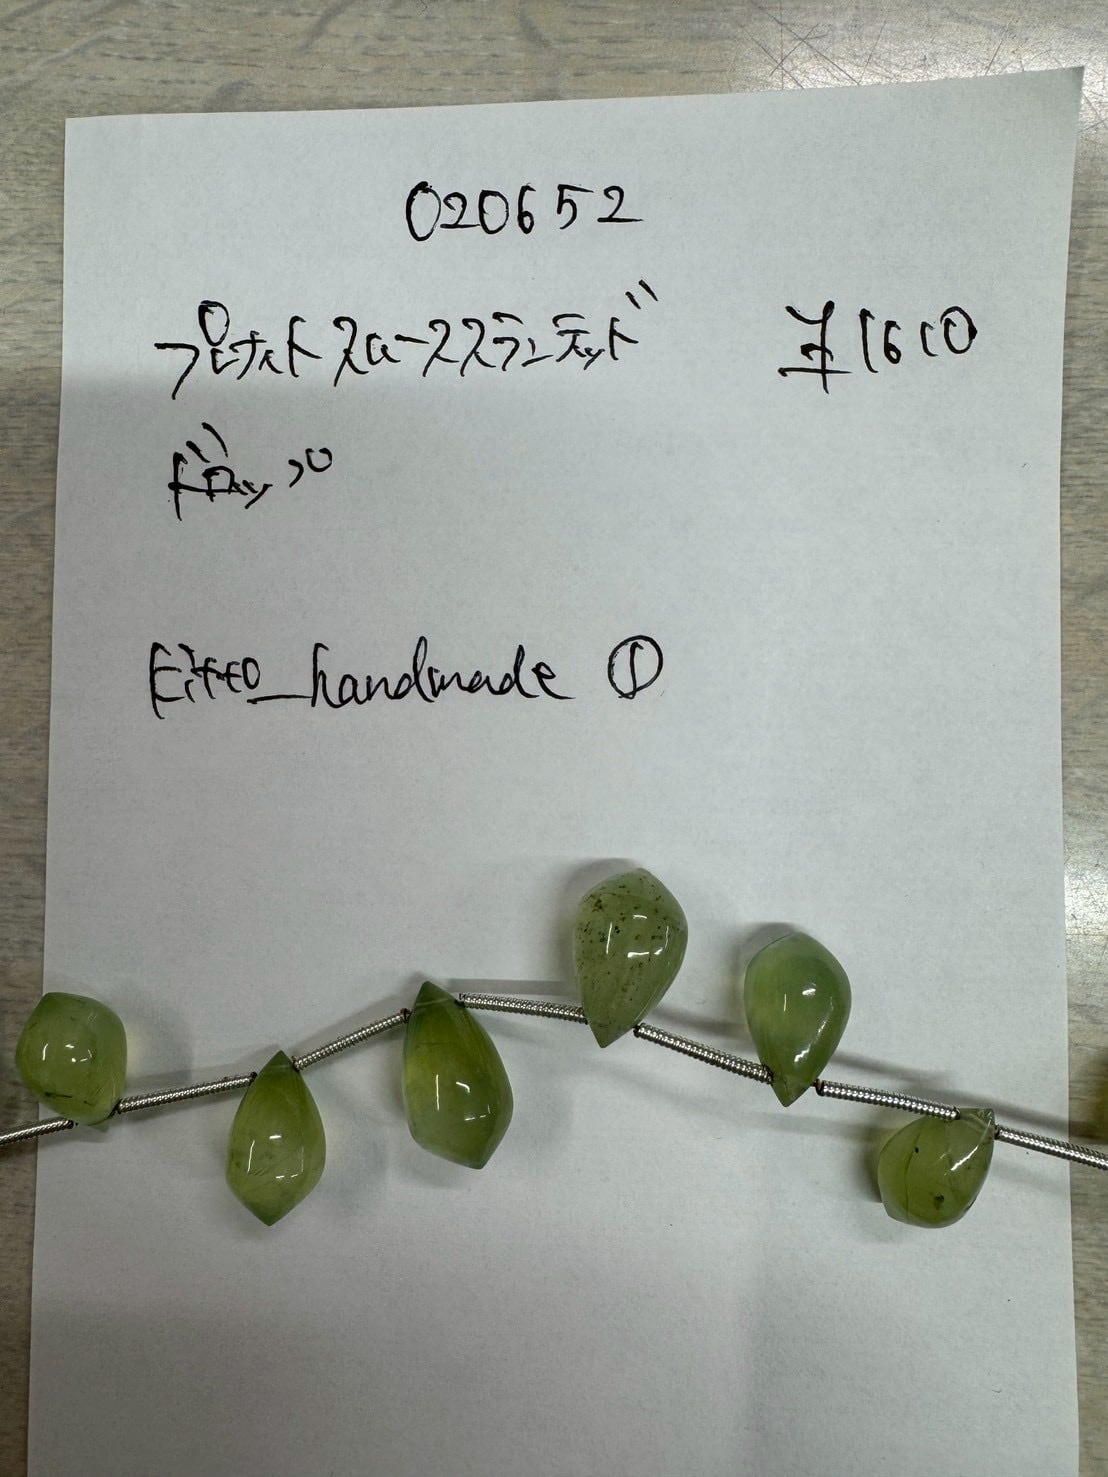 020652
プレナイト スムーススランテッド ¥1610
ドロップ
Eitto_handmade ①